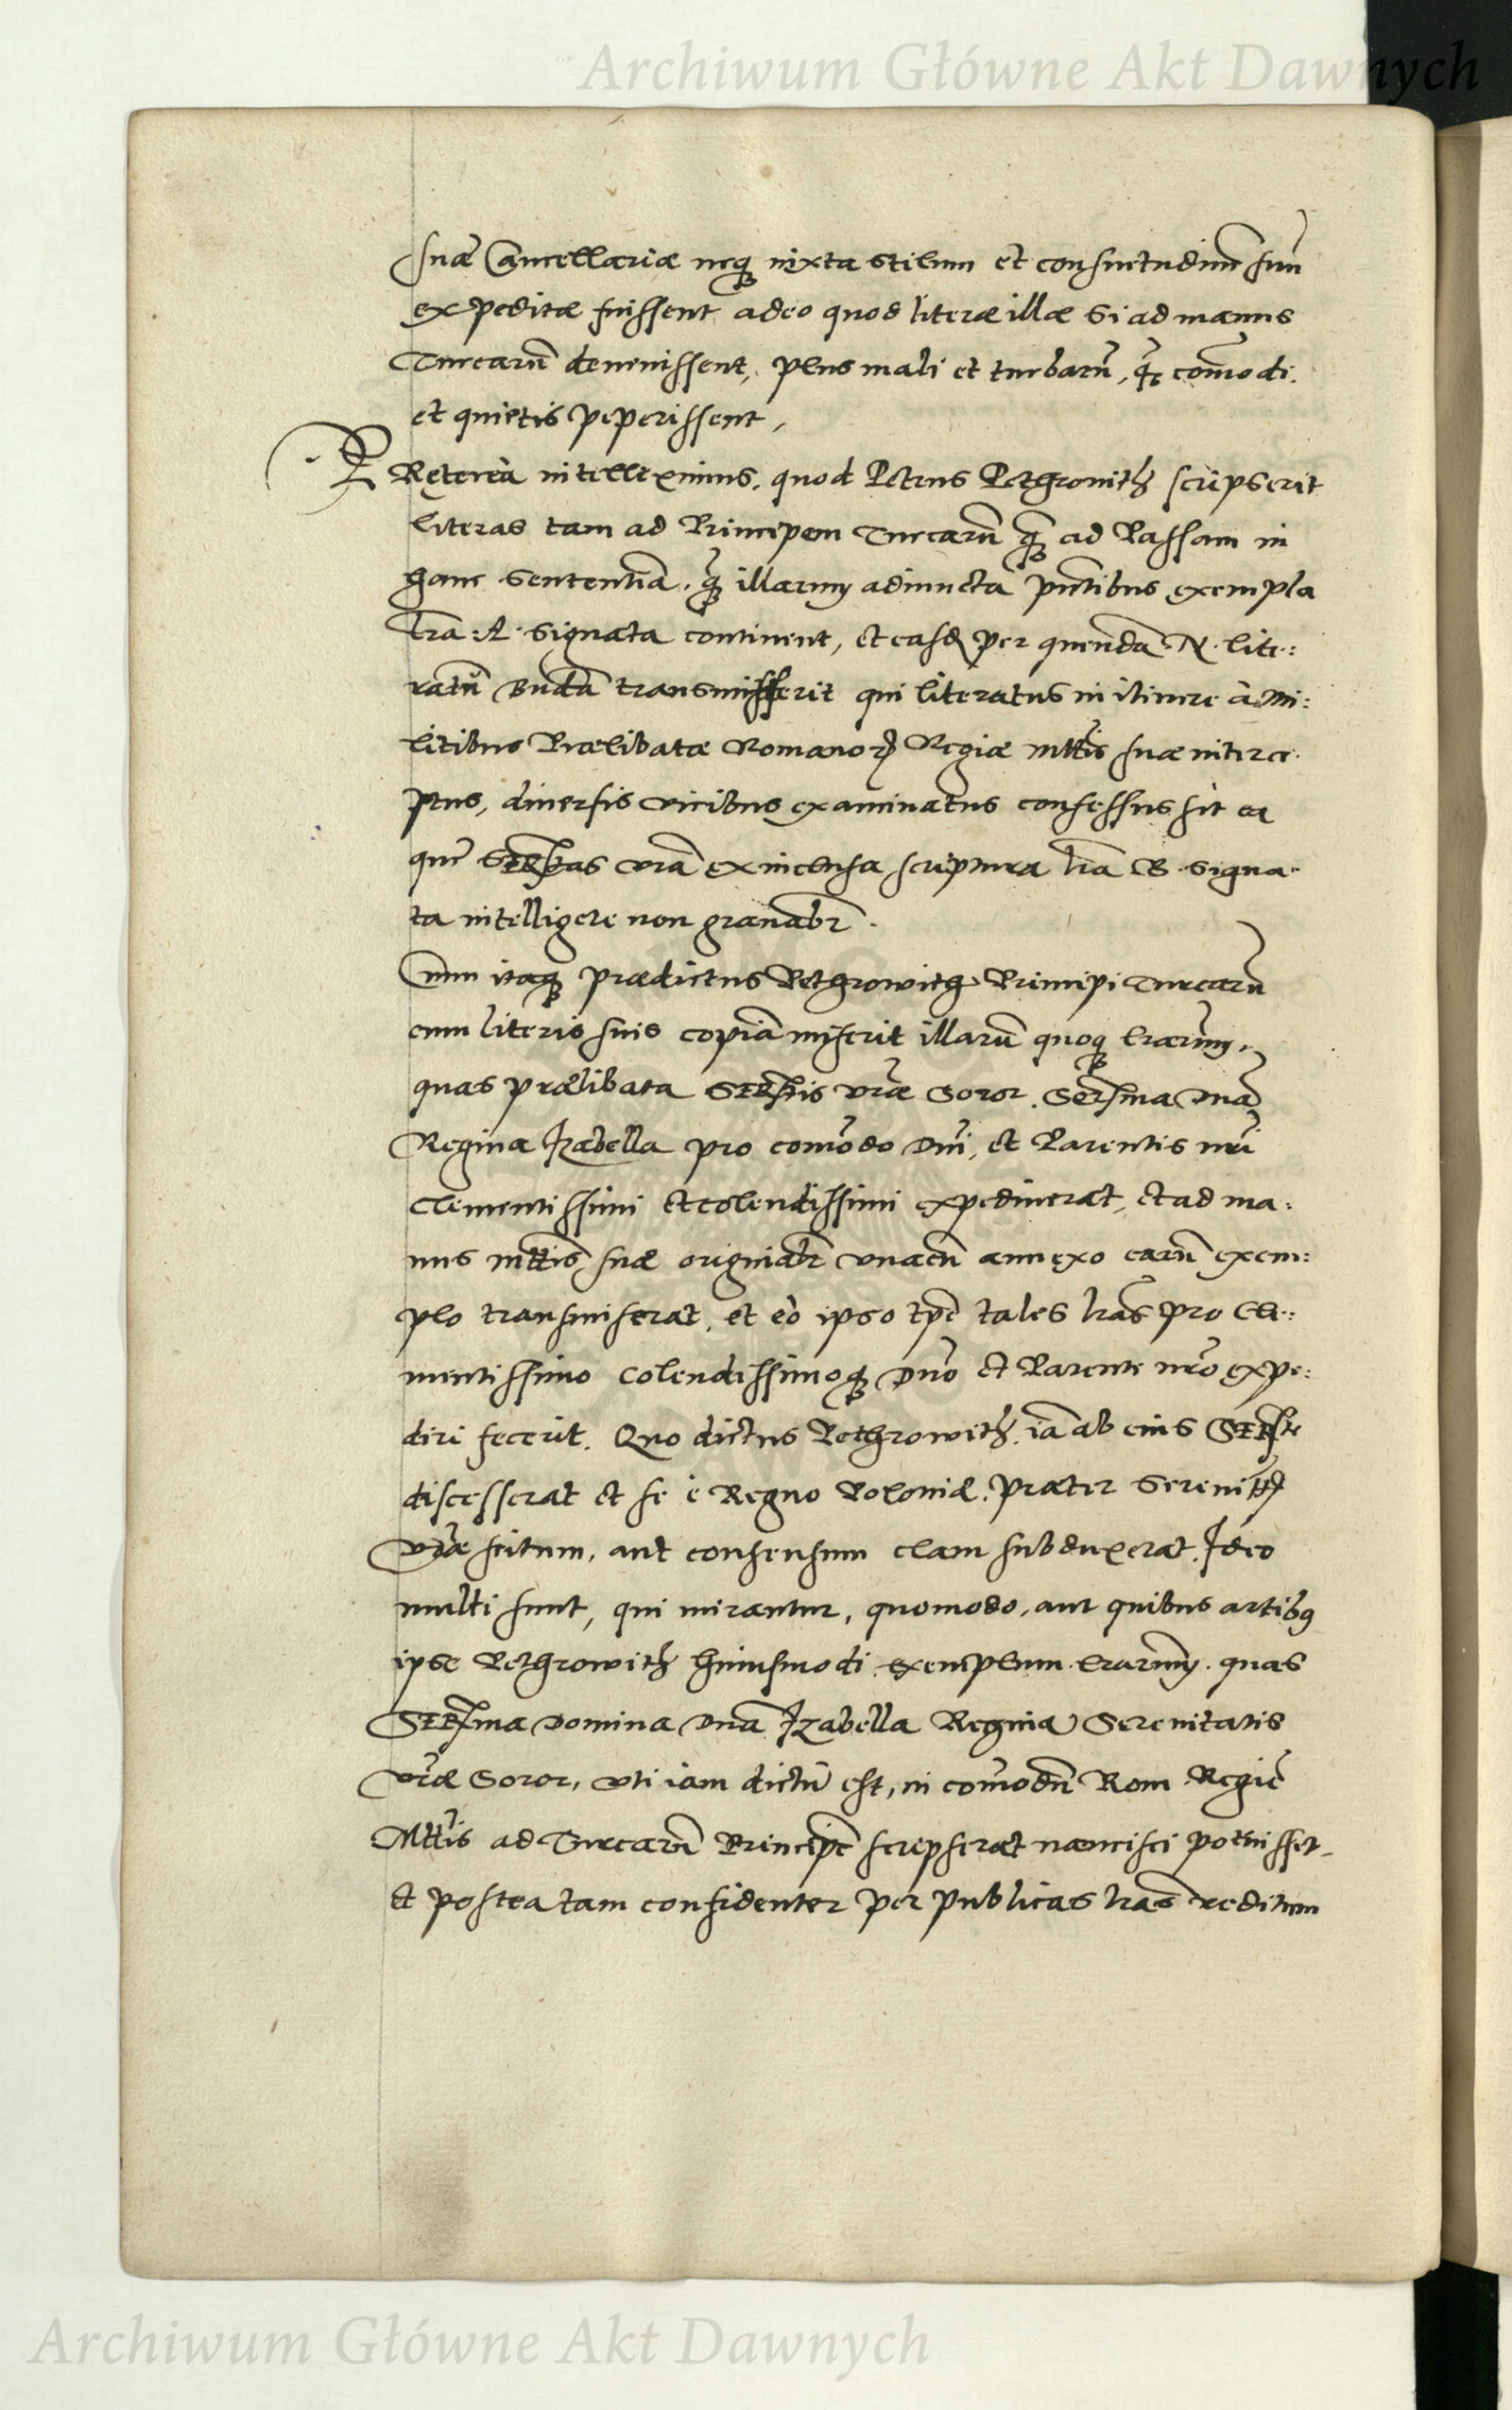 Archiwum Główne Akt Dawnych
suae Cancellariae neq iuxta stilum et consuetudinē suā
expeditae fuissent adeo quod literae illae si ad manus
Turcarū deuenissent, plus mali et turbarū, q̄ com̄odi
et quietis peperissent,
PRęterea intelleximus, quod Petrus Pethrouith scripserit
literas tam ad Principem Turcarū q̄ ad Bassam in
hanc sententiā, q̄ illarum adiuncta pn̄tibus exempla
lr̄a A. signata continent, et easd per quendā N. lite:
ratū Budā transmisserit qui literatus in itinere à mi:
litibus Praelibatae Romanor Regiae Mttis suae interce
ptus, diuersis vicibus examinatus confessus sit ea
que Sertas vr̄a ex inclusa scriptura lr̄a B. signa
ta intelligere non grauabr̄.
Cum itaq praedictus Pethrowith Principi Turcarū
cum literis suis copiā miserit illarū quoq lr̄arum,
quas praelibata Sertis vr̄ae Soror, Serma Dn̄a
Regina Izabella pro com̄odo Dn̄i, et Parentis nr̄i
Clementissimi et colendissimi expediuerat, et ad ma:
nus Mttis suae originalr̄ vnacū annexo earū exem:
plo transmiserat, et eò ipso tpē tales lr̄as pro Cle:
mentissimo Colendissimoq Dn̄o et Parente nr̄o expe:
diri fecerit. Quo dictus Pethrowith iā ab eius Serte
discesserat et se è Regno Poloniae, praeter Serenittis
vr̄ae scitum, aut consensum clam subduxerat. Ideo
multi sunt, qui mirantur, quomodo, aut quibus artibus
ipse Pethrowith huiusmodi exemplum lr̄arum quas
Serma Domina Dn̄a Izabella Regina Serenitatis
vr̄ae Soror, vti iam dictū est, in com̄odū Rom Regiē
Mttis ad Turcarū Principē scripserat nancisci potuisset
et postea tam confidenter per publicas lr̄as reditum
Archiwum Główne Akt Dawnych